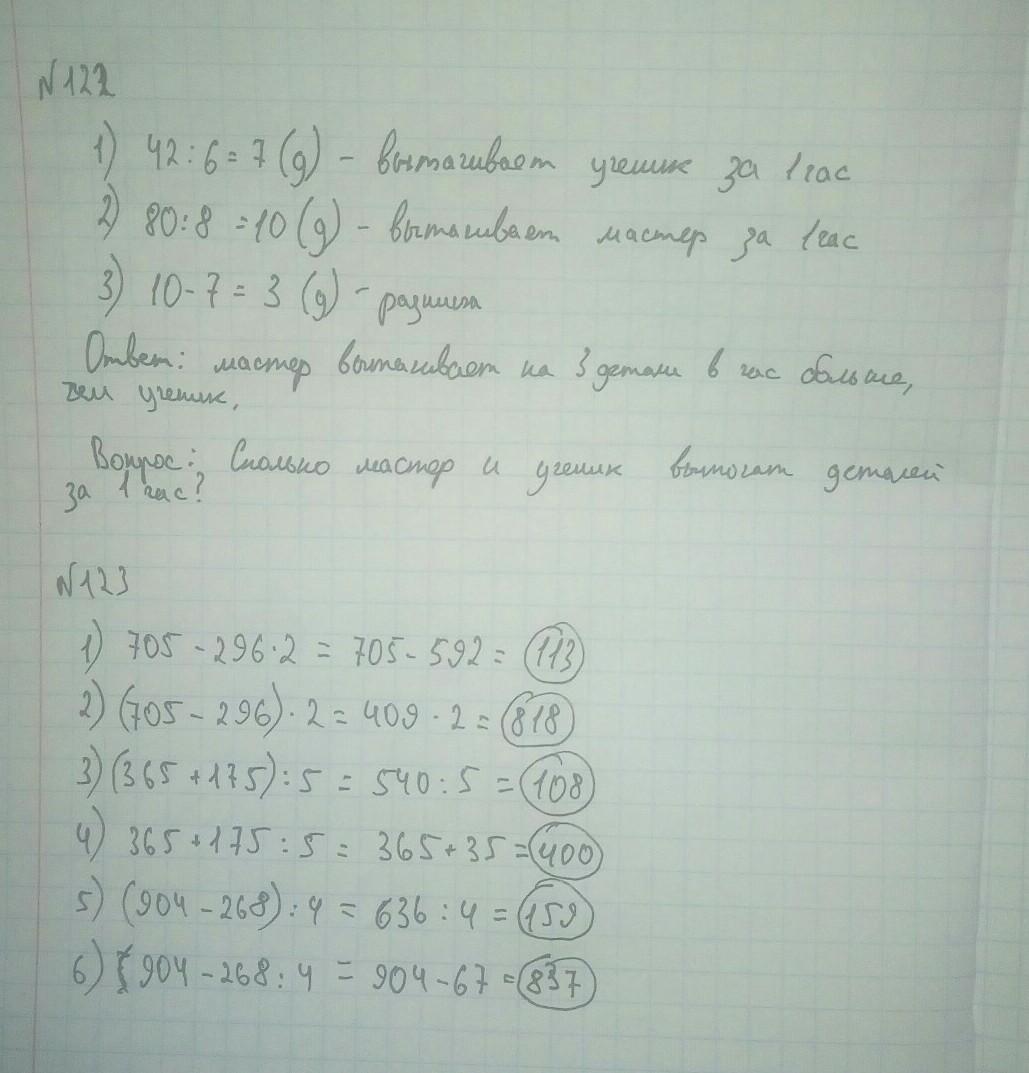 №122
1) 42:6=7(д) - вытачивает ученик за 1 час
2) 80:8=10(д) - вытачивает мастер за 1 час
3) 10-7=3(д) - разница
Ответ: мастер вытачивает на 3 детали в час больше,
чем ученик,
Вопрос: Сколько мастер и ученик выточат деталей
за 1 час?
№123
1) 705-296·2=705-592=113
2) (705-296)·2=409·2=818
3) (365+175):5=540:5=108
4) 365+175:5=365+35=400
5) (904-268):4=636:4=159
6) 904-268:4=904-67=837